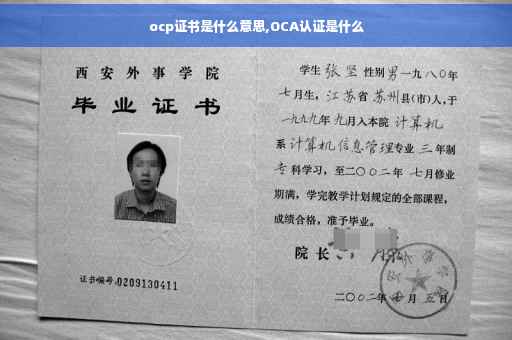 ocp证书是什么意思,OCA认证是什么
西安外事学院
毕业证书
证书编号:0209130411
学生 张坚 性别 男 一九八〇年
七月生, 江苏省 苏州县(市)人,于
一九九九年 九月入本院 计算机
系 计算机信息管理专业 三 年制
专科学习,至二〇〇二年 七月修业
期满,学完教学计划规定的全部课程,
成绩合格,准予毕业。
院长
二〇〇二年 月 五日